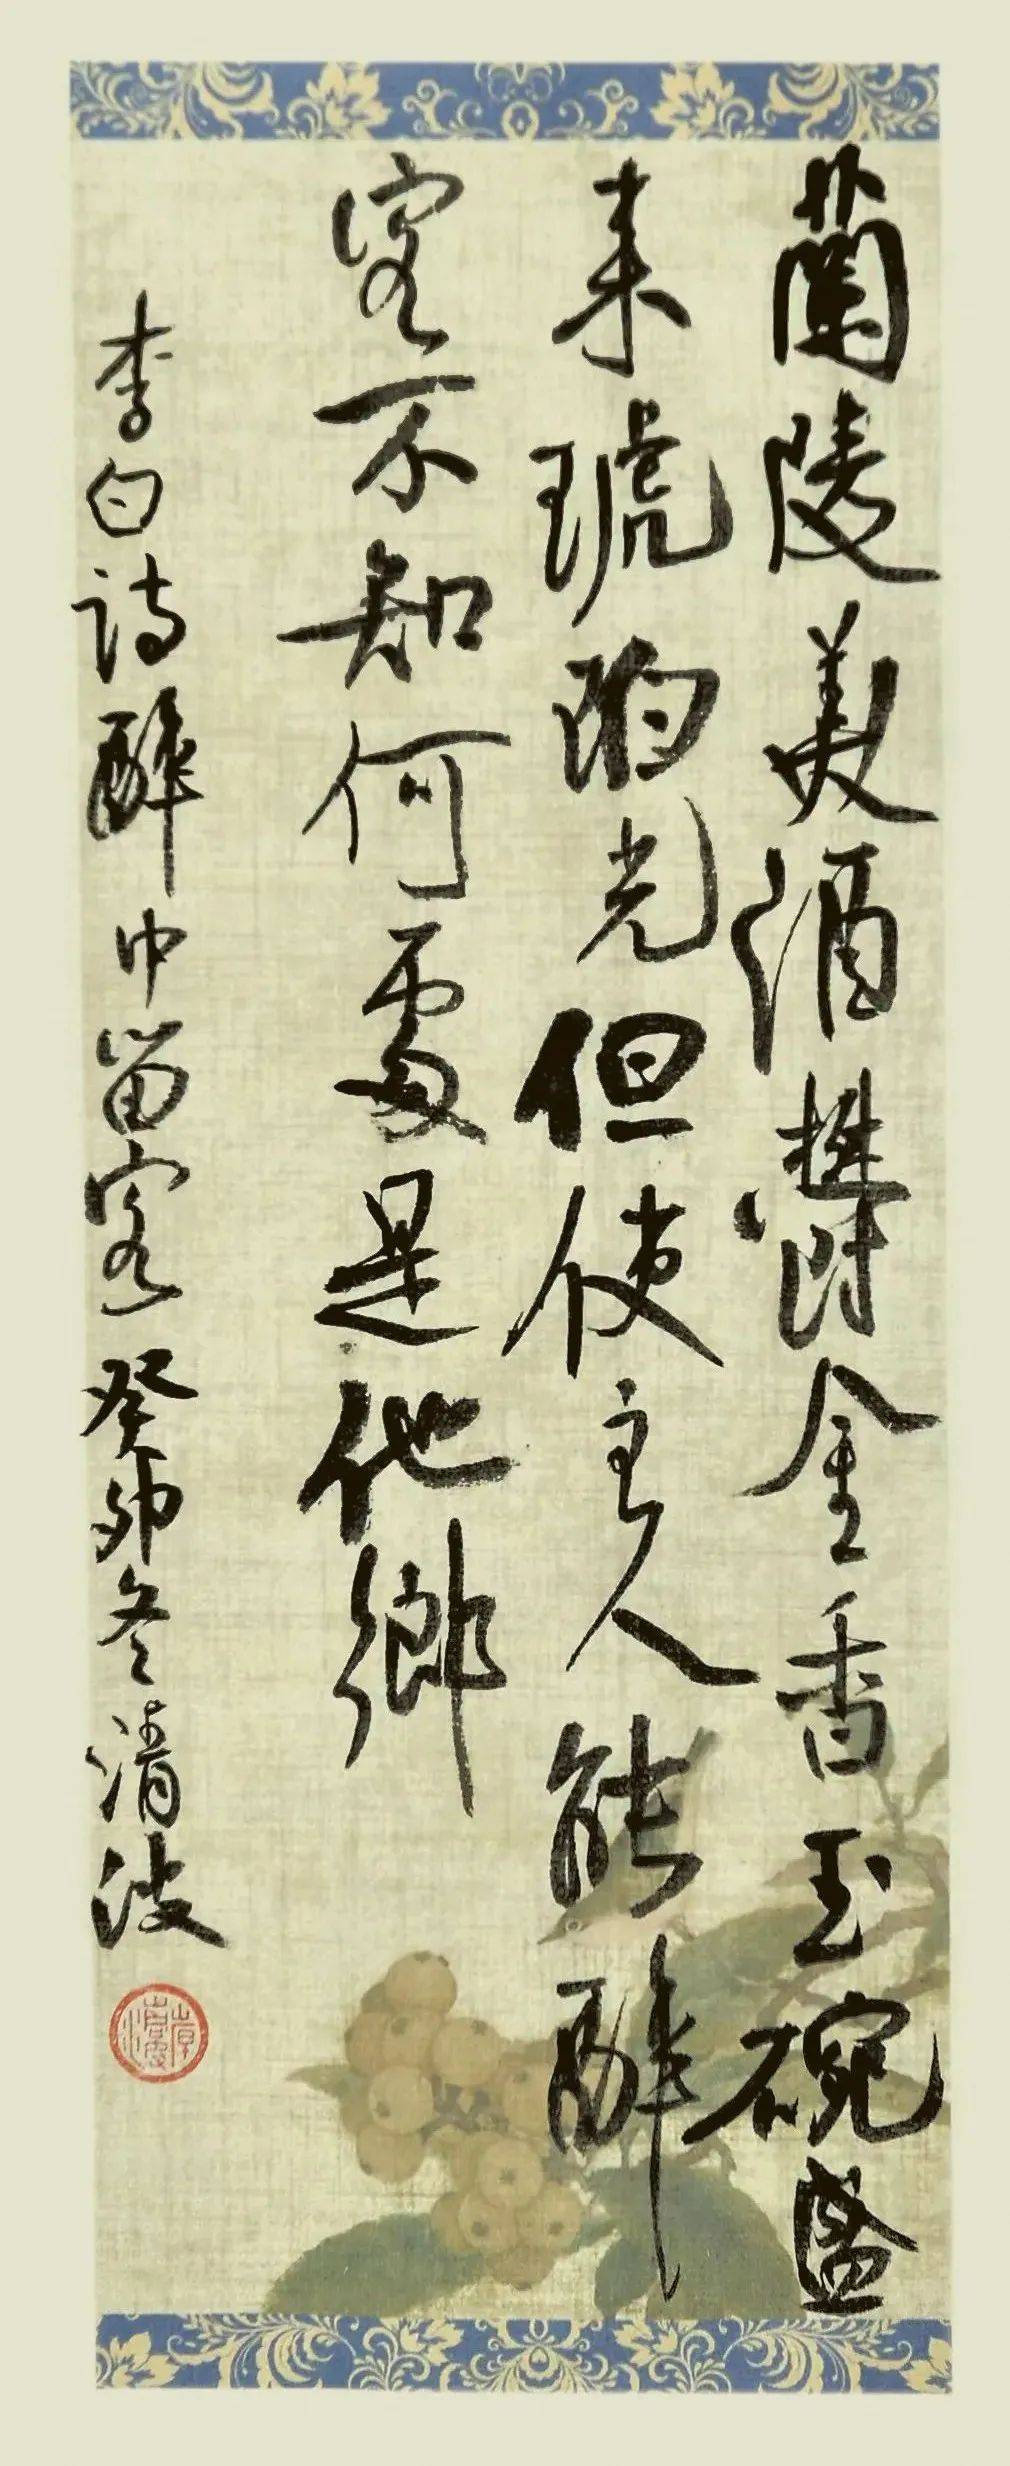 蘭陵美酒鬱金香玉碗盛
来琥珀光但使主人能醉
客不知何處是他鄉
李白詩醉中留客癸卯冬清波